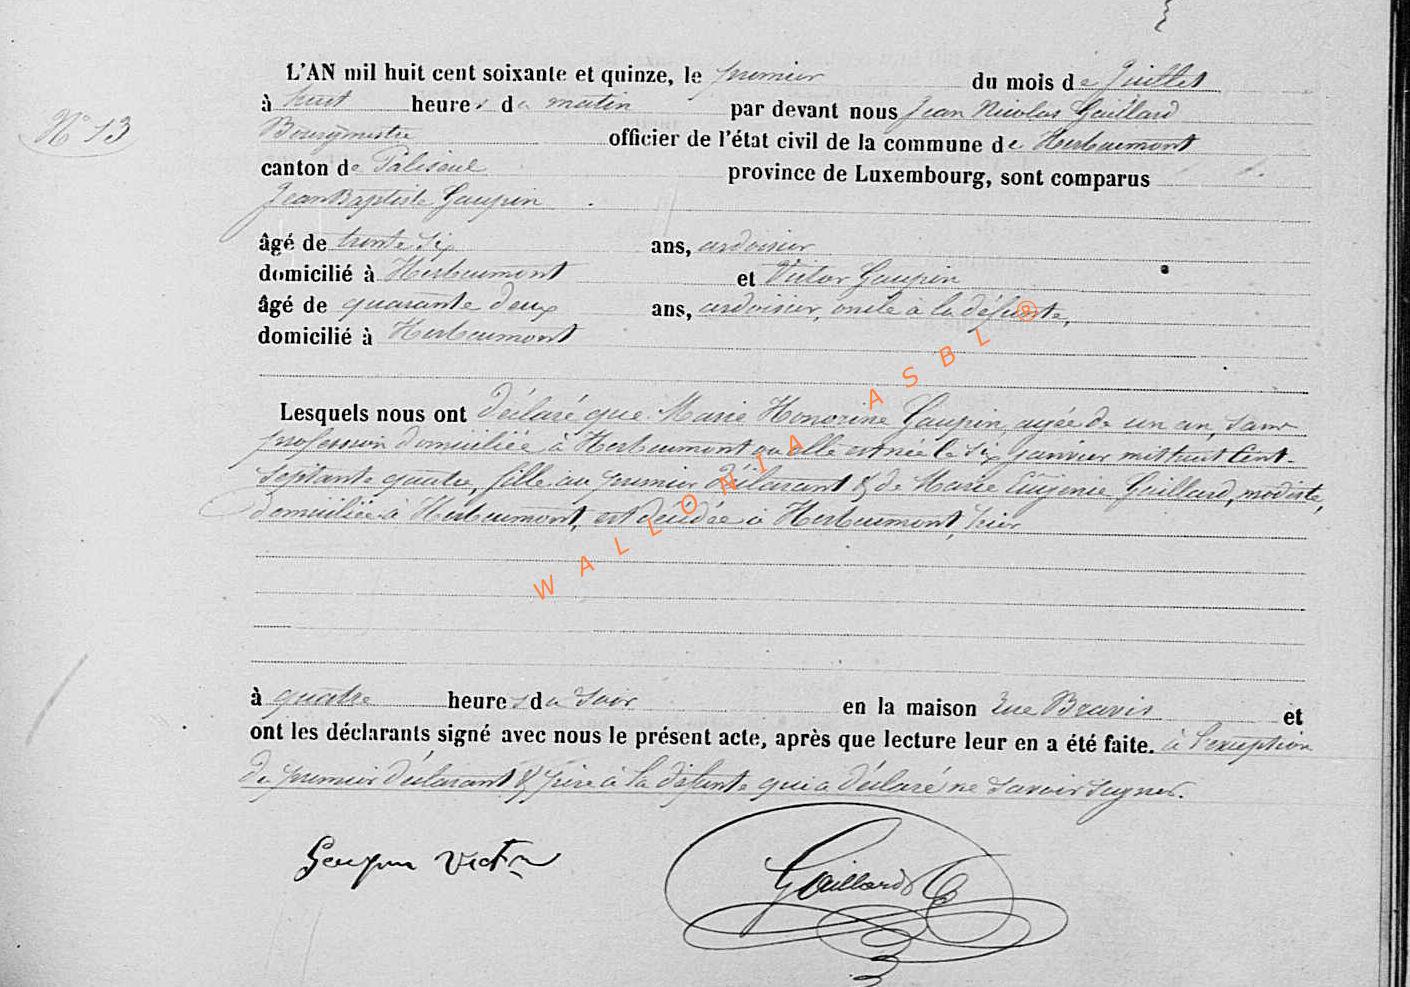 N° 13
L'AN mil huit cent soixante et quinze, le premier du mois de Juillet
à huit heures du matin par devant nous Jean Nicolas Gaillard
Bourgmestre officier de l'état civil de la commune de Herbeumont
canton de Paliseul province de Luxembourg, sont comparus
Jean Baptiste Gaupin
âgé de trente six ans, ardoisier
domicilié à Herbeumont et Victor Gaupin
âgé de quarante deux ans, ardoisier, oncle à la défunte,
domicilié à Herbeumont
Lesquels nous ont déclaré que Marie Honorine Gaupin, agée de un an, sans
profession domiciliée à Herbeumont ou elle est née le six Janvier mil huit Cent
septante quatre, fille au premier Déclarant & de Marie Eugénie Gaillard, modiste,
domiciliée à Herbeumont, est décédée à Herbeumont, hier
à quatre heures du soir en la maison rue Bravis et
ont les déclarants signé avec nous le présent acte, après que lecture leur en a été faite. à l'exception
du premier déclarant & père à la défunte qui a déclaré ne savoir signer.
Gaupin Victor
Gaillard
WALLONIA ASBL ®